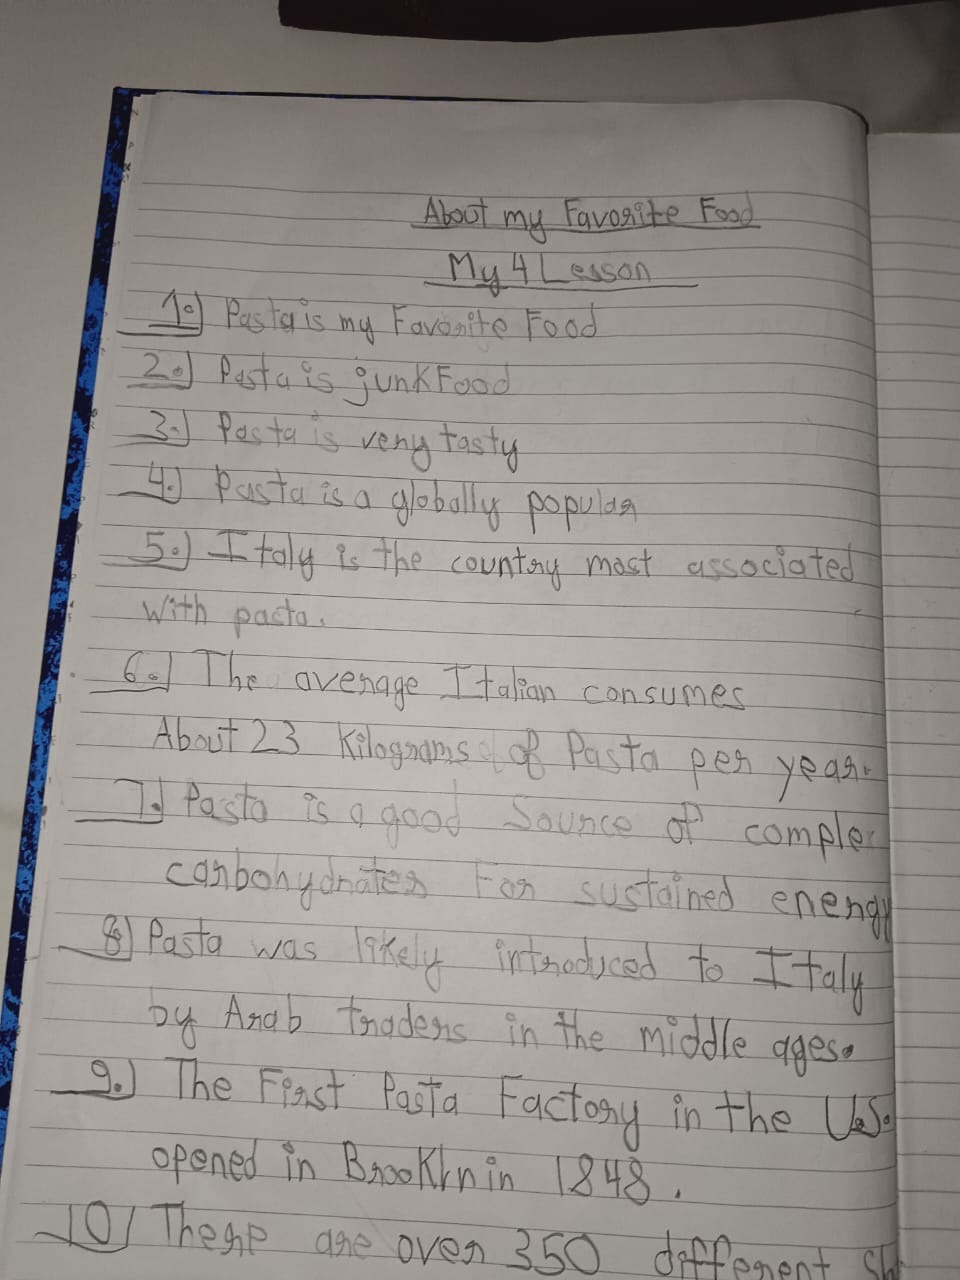 About my Favorite Food
My 4 Lesson
1.) Pasta is my Favorite Food
2.) Pasta is junk Food
3.) Pasta is very tasty
4.) Pasta is a globally popular
5.) Italy is the country most associated
with pasta.
6.) The average Italian consumes
About 23 Kilograms of Pasta per year.
7.) Pasta is a good Source of comple
carbohydrates For sustained energy
8) Pasta was likely introduced to Italy
by Arab traders in the middle ages.
9.) The First Pasta Factory in the U.S.
opened in Brooklrn in 1848.
10) There are over 350 different sh